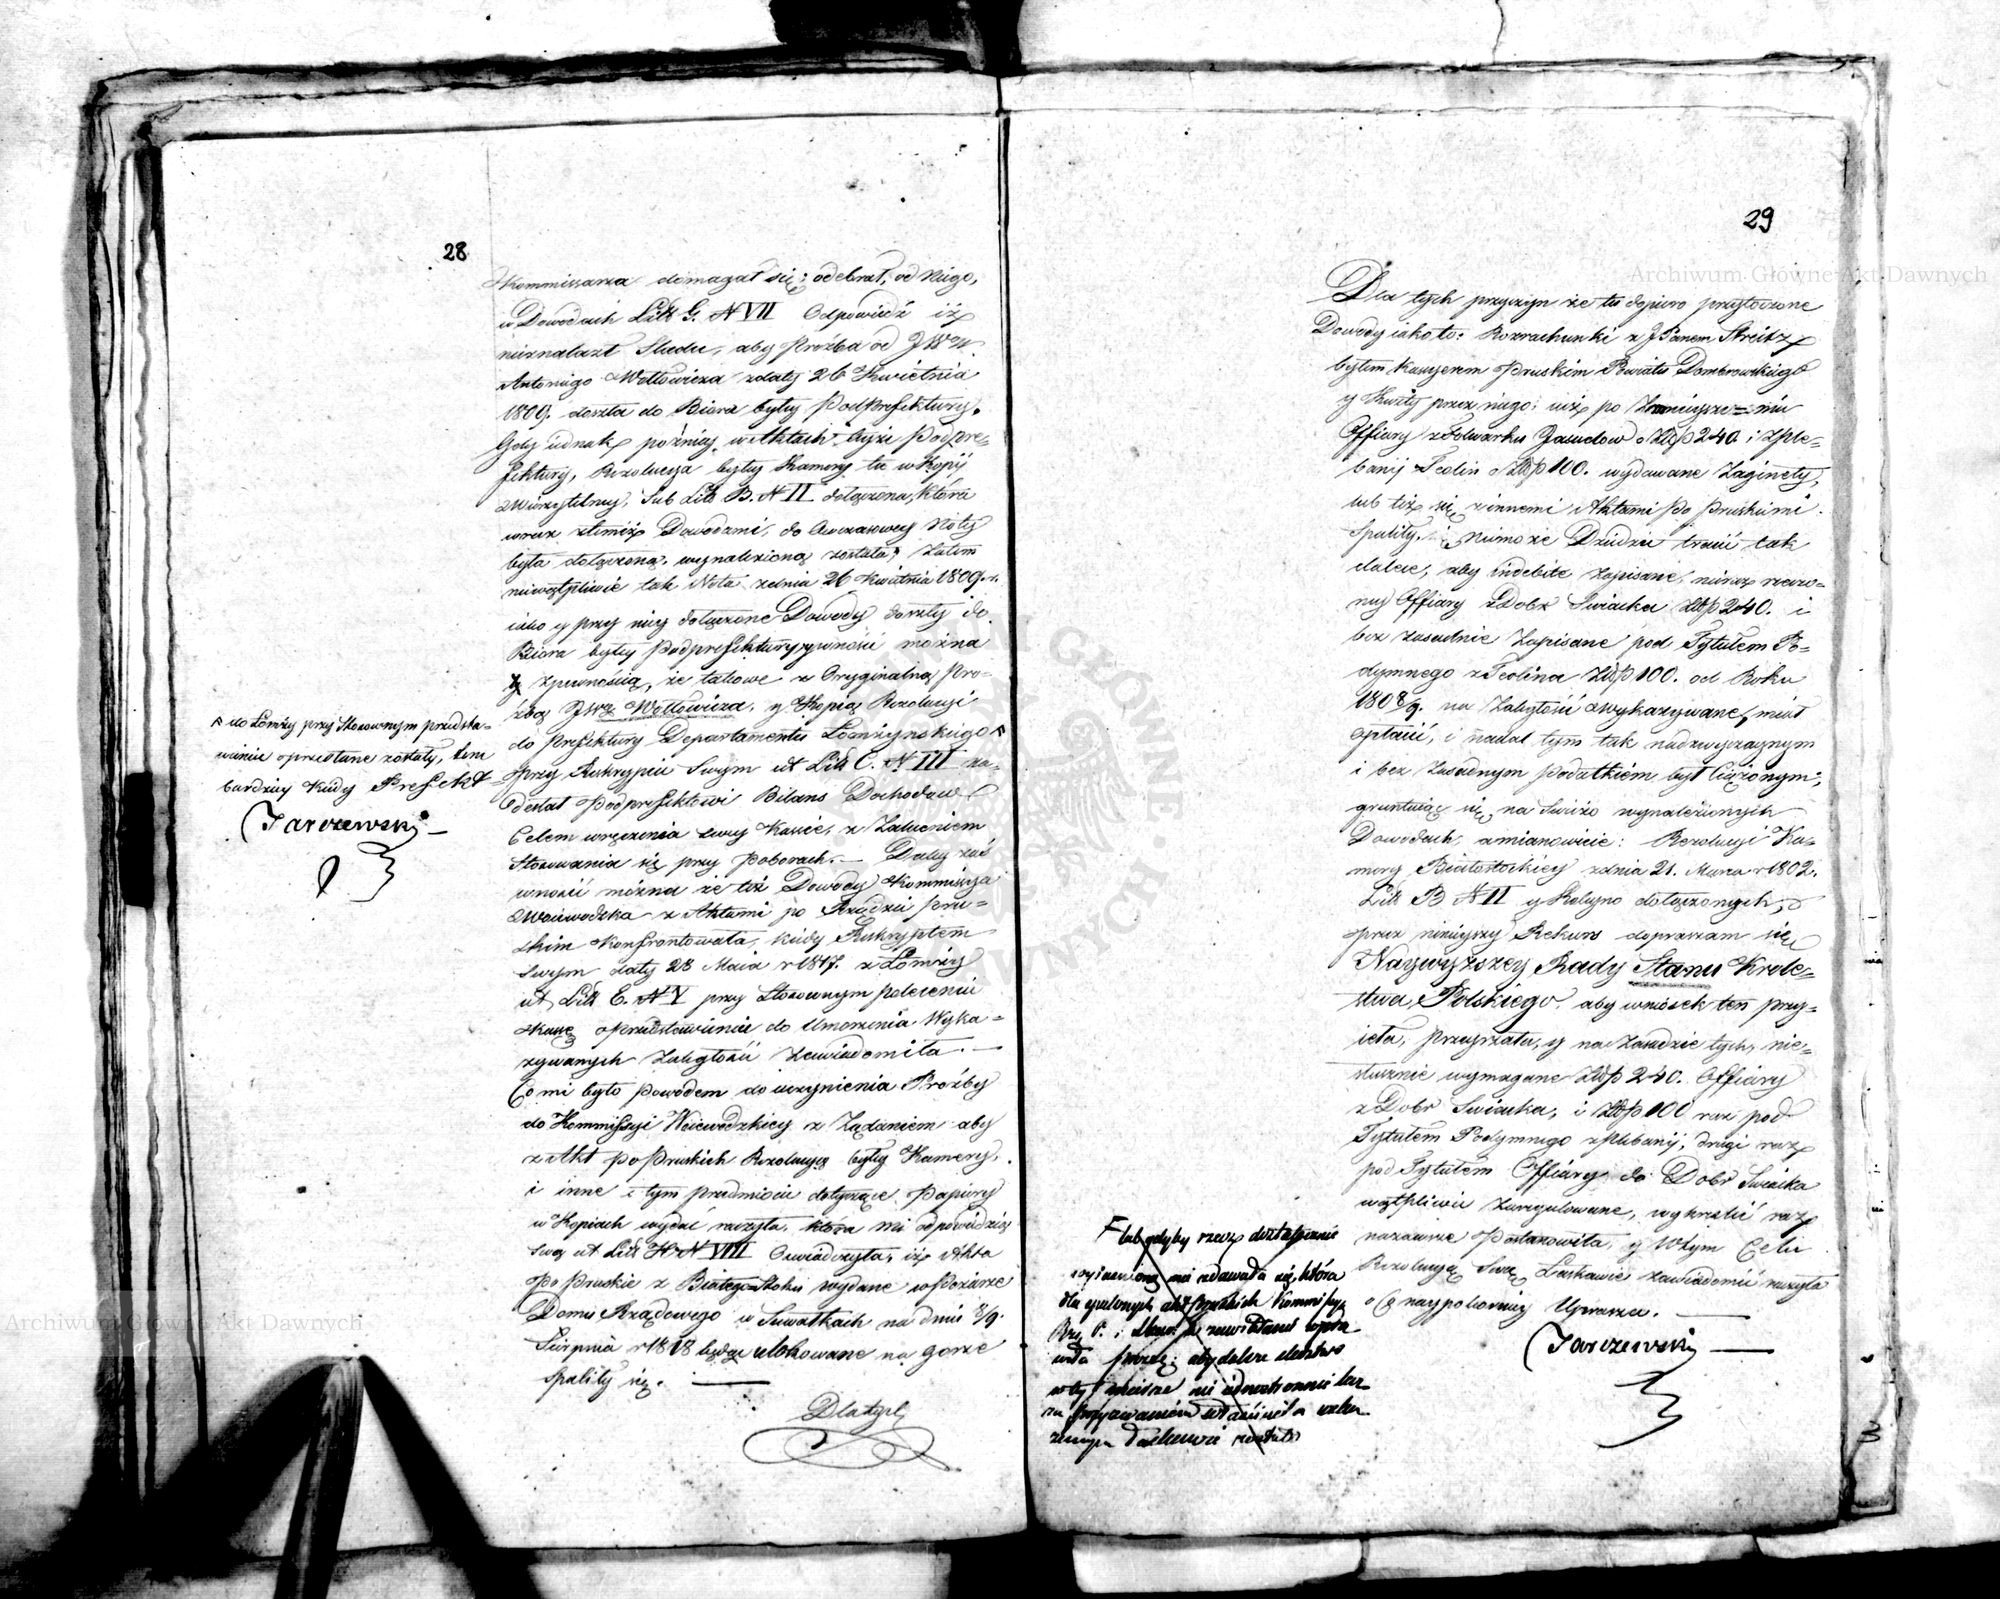 28
Kommissarza domagał się; odebrał, od niego,
w Dowodach Litt G. N VII Odpowiedź iż
nieznalazł Sladu, aby Prożba od JWW
Antoniego Wołłowicza zdaty 26 Kwietnia
1809. doszła do Biora byłey Podprefektury.
Gdy iednak pożniey w Aktach teyże Podpre=
fektury, Rezolucya byłey Kamery tu w Kopij
Wierzytelney, Sub Litt B. N II dołączona, która
wraz ztemiż Dowodami, do Owczasowey Noty
była dołączoną, wynalezioną została; Zatem
niewątpliwie tak Nota zdnia 26 Kwietnia 1809. r.
iako y przy niey dołączone Dowody doszły do
Biora byłey Podprefektury,
zpewnością, że takowe z Oryginalną Pro=
źbą JWgo Wołłowicza, y Kopią Rezolucyi
do Prefektury Departamentu Łomżynskiego
przy Reskrypcie Swym ut Litt C. N III za=
desłał Podprefektowi Bilans Dochodow
Celem wręczenia Kassie, z Zaleceniem
Stosowania się przy poborach. — Daley zaś
wnosić można że też Dowody Kommissya
Woiewodzka z Aktami po Rządzie Pru=
skim Konfrontowała, kiedy Reskryptem
Swym daty 28 Maia r 1817. z Łomży
ut Litt E. N V przy Stosownym poleceniu
Kassę o Przedstawienie do Umorzenia Wyka=
zywanych Zaległości Zawiadomiła. —
Co mi było powodem do uczynienia Proźby
do Kommissyi Woiewodzkiey z Żądaniem aby
z Akt po Pruskich Rezolucyą byłey Kamery,
i inne w tym przedmiocie dotyczące Papiery
w Kopiach wydać raczyła, która mi odpowiedzią
Swą ut Litt H. N VIII Oswiadczyła, iż Akta
Po Pruskie z Białego Stoku wydane w Pożarze
Domu Rządowego w Suwałkach na dniu 8/9.
Sierpnia r 1818 będąc ulokowane na gorze
Spaliły się. —
Dla tych
do Łomży przy Stosownym przedsta=
wieniu przesłane zostały, tem
bardziey kiedy Prefekt
Jarczewski
29
Dla tych przyczyn że tu dopiero przytoczone
Dowody iako to: Rozrachunki z JPanem Streitz
byłem Kassyerem Pruskim Powiatu Dombrowskiego
y Kwity przez niego, iuż po
Offiary zfolwarku Jasudow Złłp 240 i zPle=
banij Teolin Złłp 100. wydawane Zaginęły,
lub też się z innemi Aktami po Pruskiemi
Spaliły. Mimo że Dziedzic traci tak
dalece, aby indebite Zapisane, nieraz rzeczo=
ney Offiary zDobr Swiacka Złłp 240. i
bez zasadnie Zapisane pod Tytułem Po=
dymnego zTeolina Złłp 100. od Roku
1808/9. na Zaległość Wykazywane, miał
opłacić, i nadal tym tak nadzwyczaynym
i bez Zasadnym podatkiem był Ciążonym;
gruntuiąc się, na Swieżo wynalezionych
Dowodach, amianowicie: Rezolucyi Ka=
mory Białostockiey zdnia 21. Marca r 1802.
Litt B N II y Koleyno dołączonych,
przez nineyszy Rekurs dopraszam się
Naywyższey Rady Stanu Krole=
stwa Polskiego, aby wniosek ten przy=
ięła, Przeyrzała, y na Zasadzie tych, nie=
słusznie wymagane Złłp 240. Offiary
z Dobr Swiacka, i Złłp 100 raz pod
Tytułem Podymnego zplebanij, drugi raz
pod Tytułem Offiary do Dobr Swiacka
wątpliwie Zaregulowane, wykreslić raz
nazawsze Postanowiła, y Wtym Celu
Rezolucyą Swą Łaskawie zawiadomić raczyła
o Co naypokorniey Upraszam. —
Jarczewski —
lub gdyby rzecz dostatecznie
wyiasnioną nie zdawała się, która
dla spalonych akt Pruskich Kommissyi